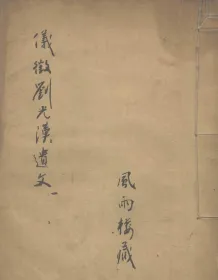 儀徵劉光漢遺文
風雨樓藏